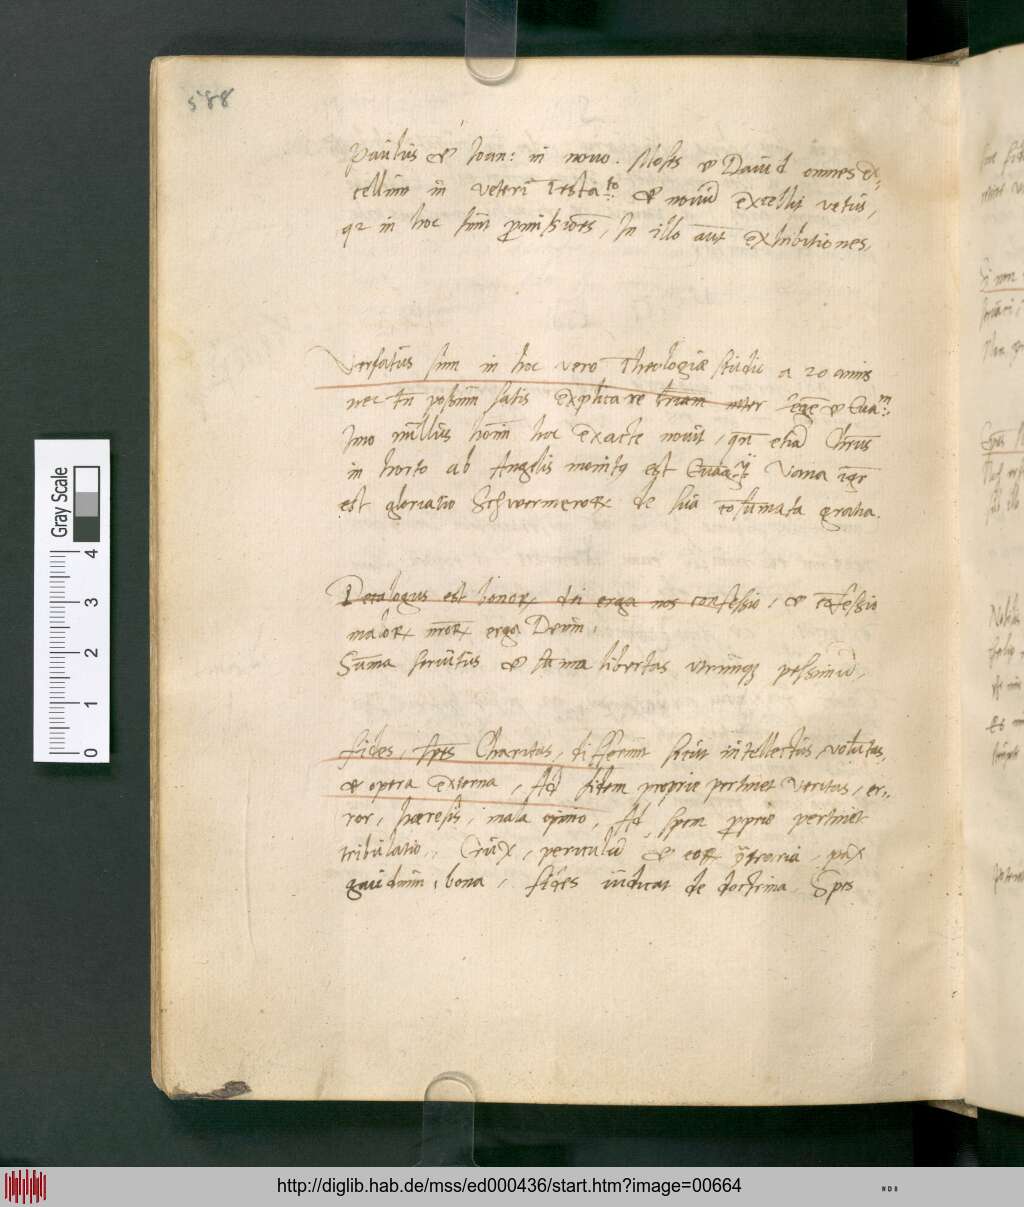 588
Paulus & Ioan: in novo. Moses & David omnes ex-
cellũt in veteri Testa:to & novũ excellit vetus,
qr in hoc sunt promissiões, In illo aũt exhibitiones
Versatus sum in hoc vero Theologiæ studio a 20 annis
nec tñ possum satis explicare triam inter legẽ & Eua:m
Imo nullus hoim hoc exacte novit, qñ etiã Chrũs
in horto ab Angelis monitus est Euang:ij Vana igr
est gloriatio Schwermerorũ de sua cosumata gratia.
Decalogus est bonorũ dei erga nos confessio, & cofessio
malorũ nrorũ erga Deum,
Suma servitus & suma libertas utrumque pessimũ,
fides, spes Charitas, differunt sicut intellectus, volutas,
& opera externa, Ad fidem proprie pertinet Veritas, er-
ror, hæresis, mala opinio, Ad spem proprie pertinet
tribulatio, Crux, periculũ & eorũ cotraria, pax
gaudium, bona, fides iudicat de doctrina, Spes
Gray Scale
0 1 2 3 4
http://diglib.hab.de/mss/ed000436/start.htm?image=00664